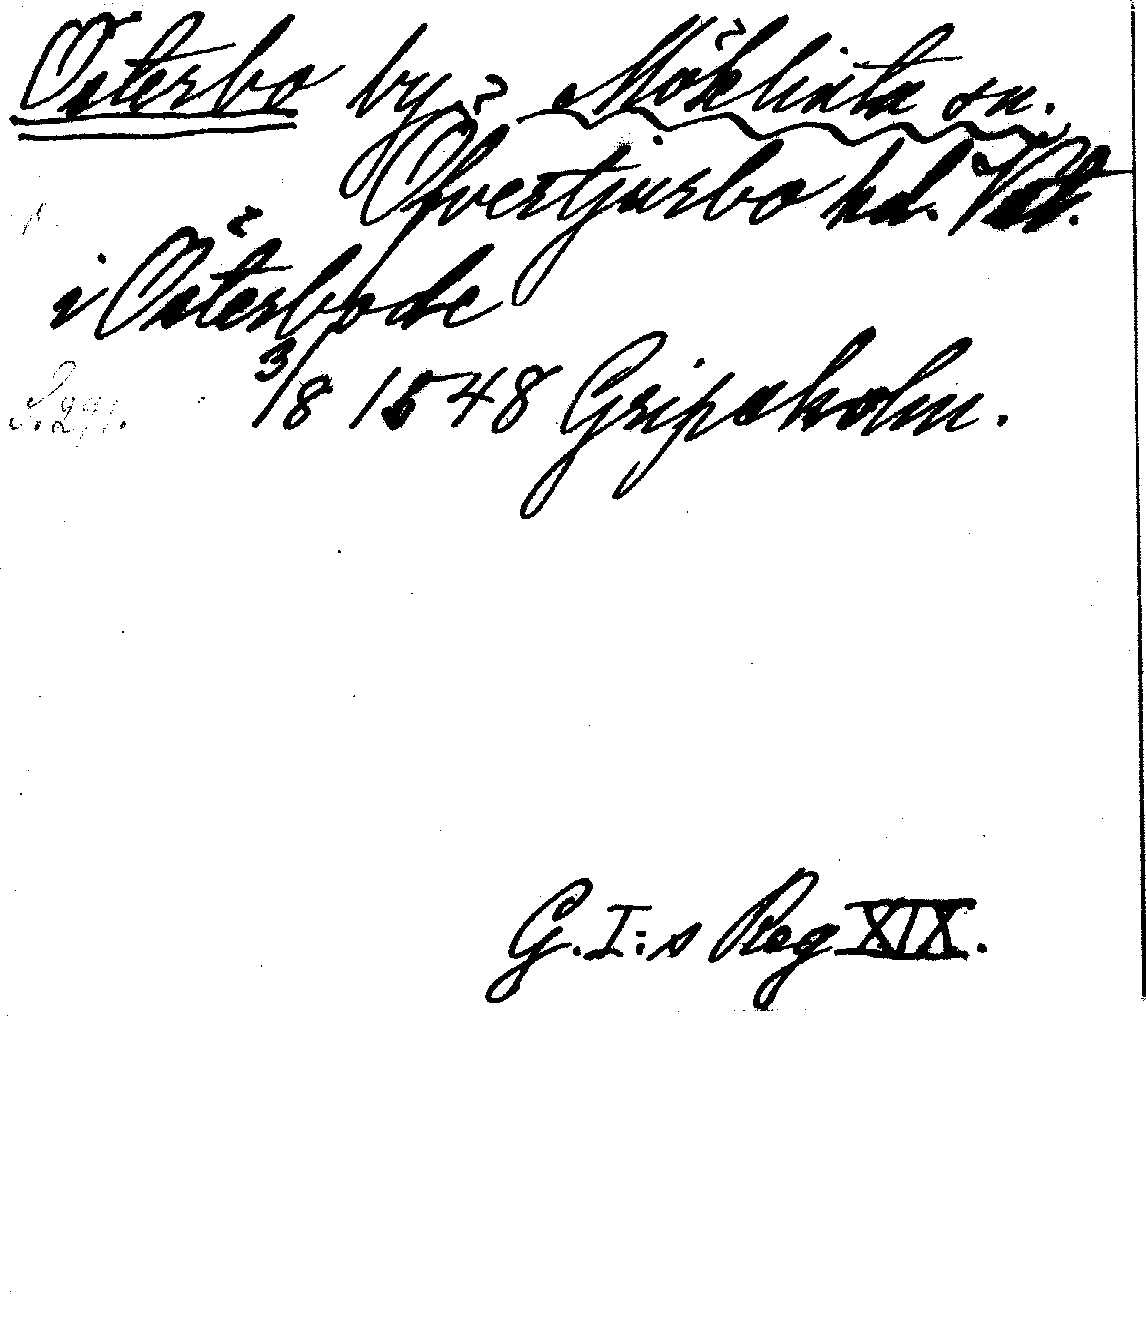 Österbo by, Möklinta sn.
Övertjurbo hd. Vstm.
i Österbode
3/8 1548 Gripsholm.
S. 291.
G. I:s Reg XIX.